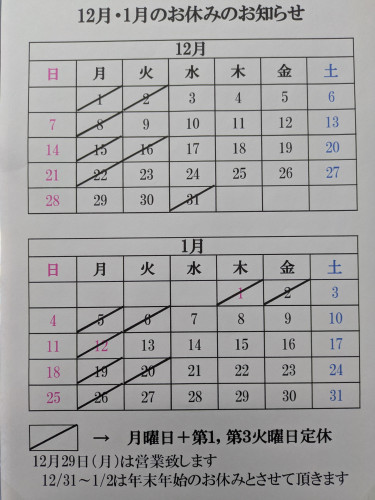 12月・1月のお休みのお知らせ
12月
日 月 火 水 木 金 土
1 2 3 4 5 6
7 8 9 10 11 12 13
14 15 16 17 18 19 20
21 22 23 24 25 26 27
28 29 30 31
1月
日 月 火 水 木 金 土
1 2 3
4 5 6 7 8 9 10
11 12 13 14 15 16 17
18 19 20 21 22 23 24
25 26 27 28 29 30 31
→ 月曜日＋第1, 第3火曜日定休
12月29日(月)は営業致します
12/31～1/2は年末年始のお休みとさせて頂きます